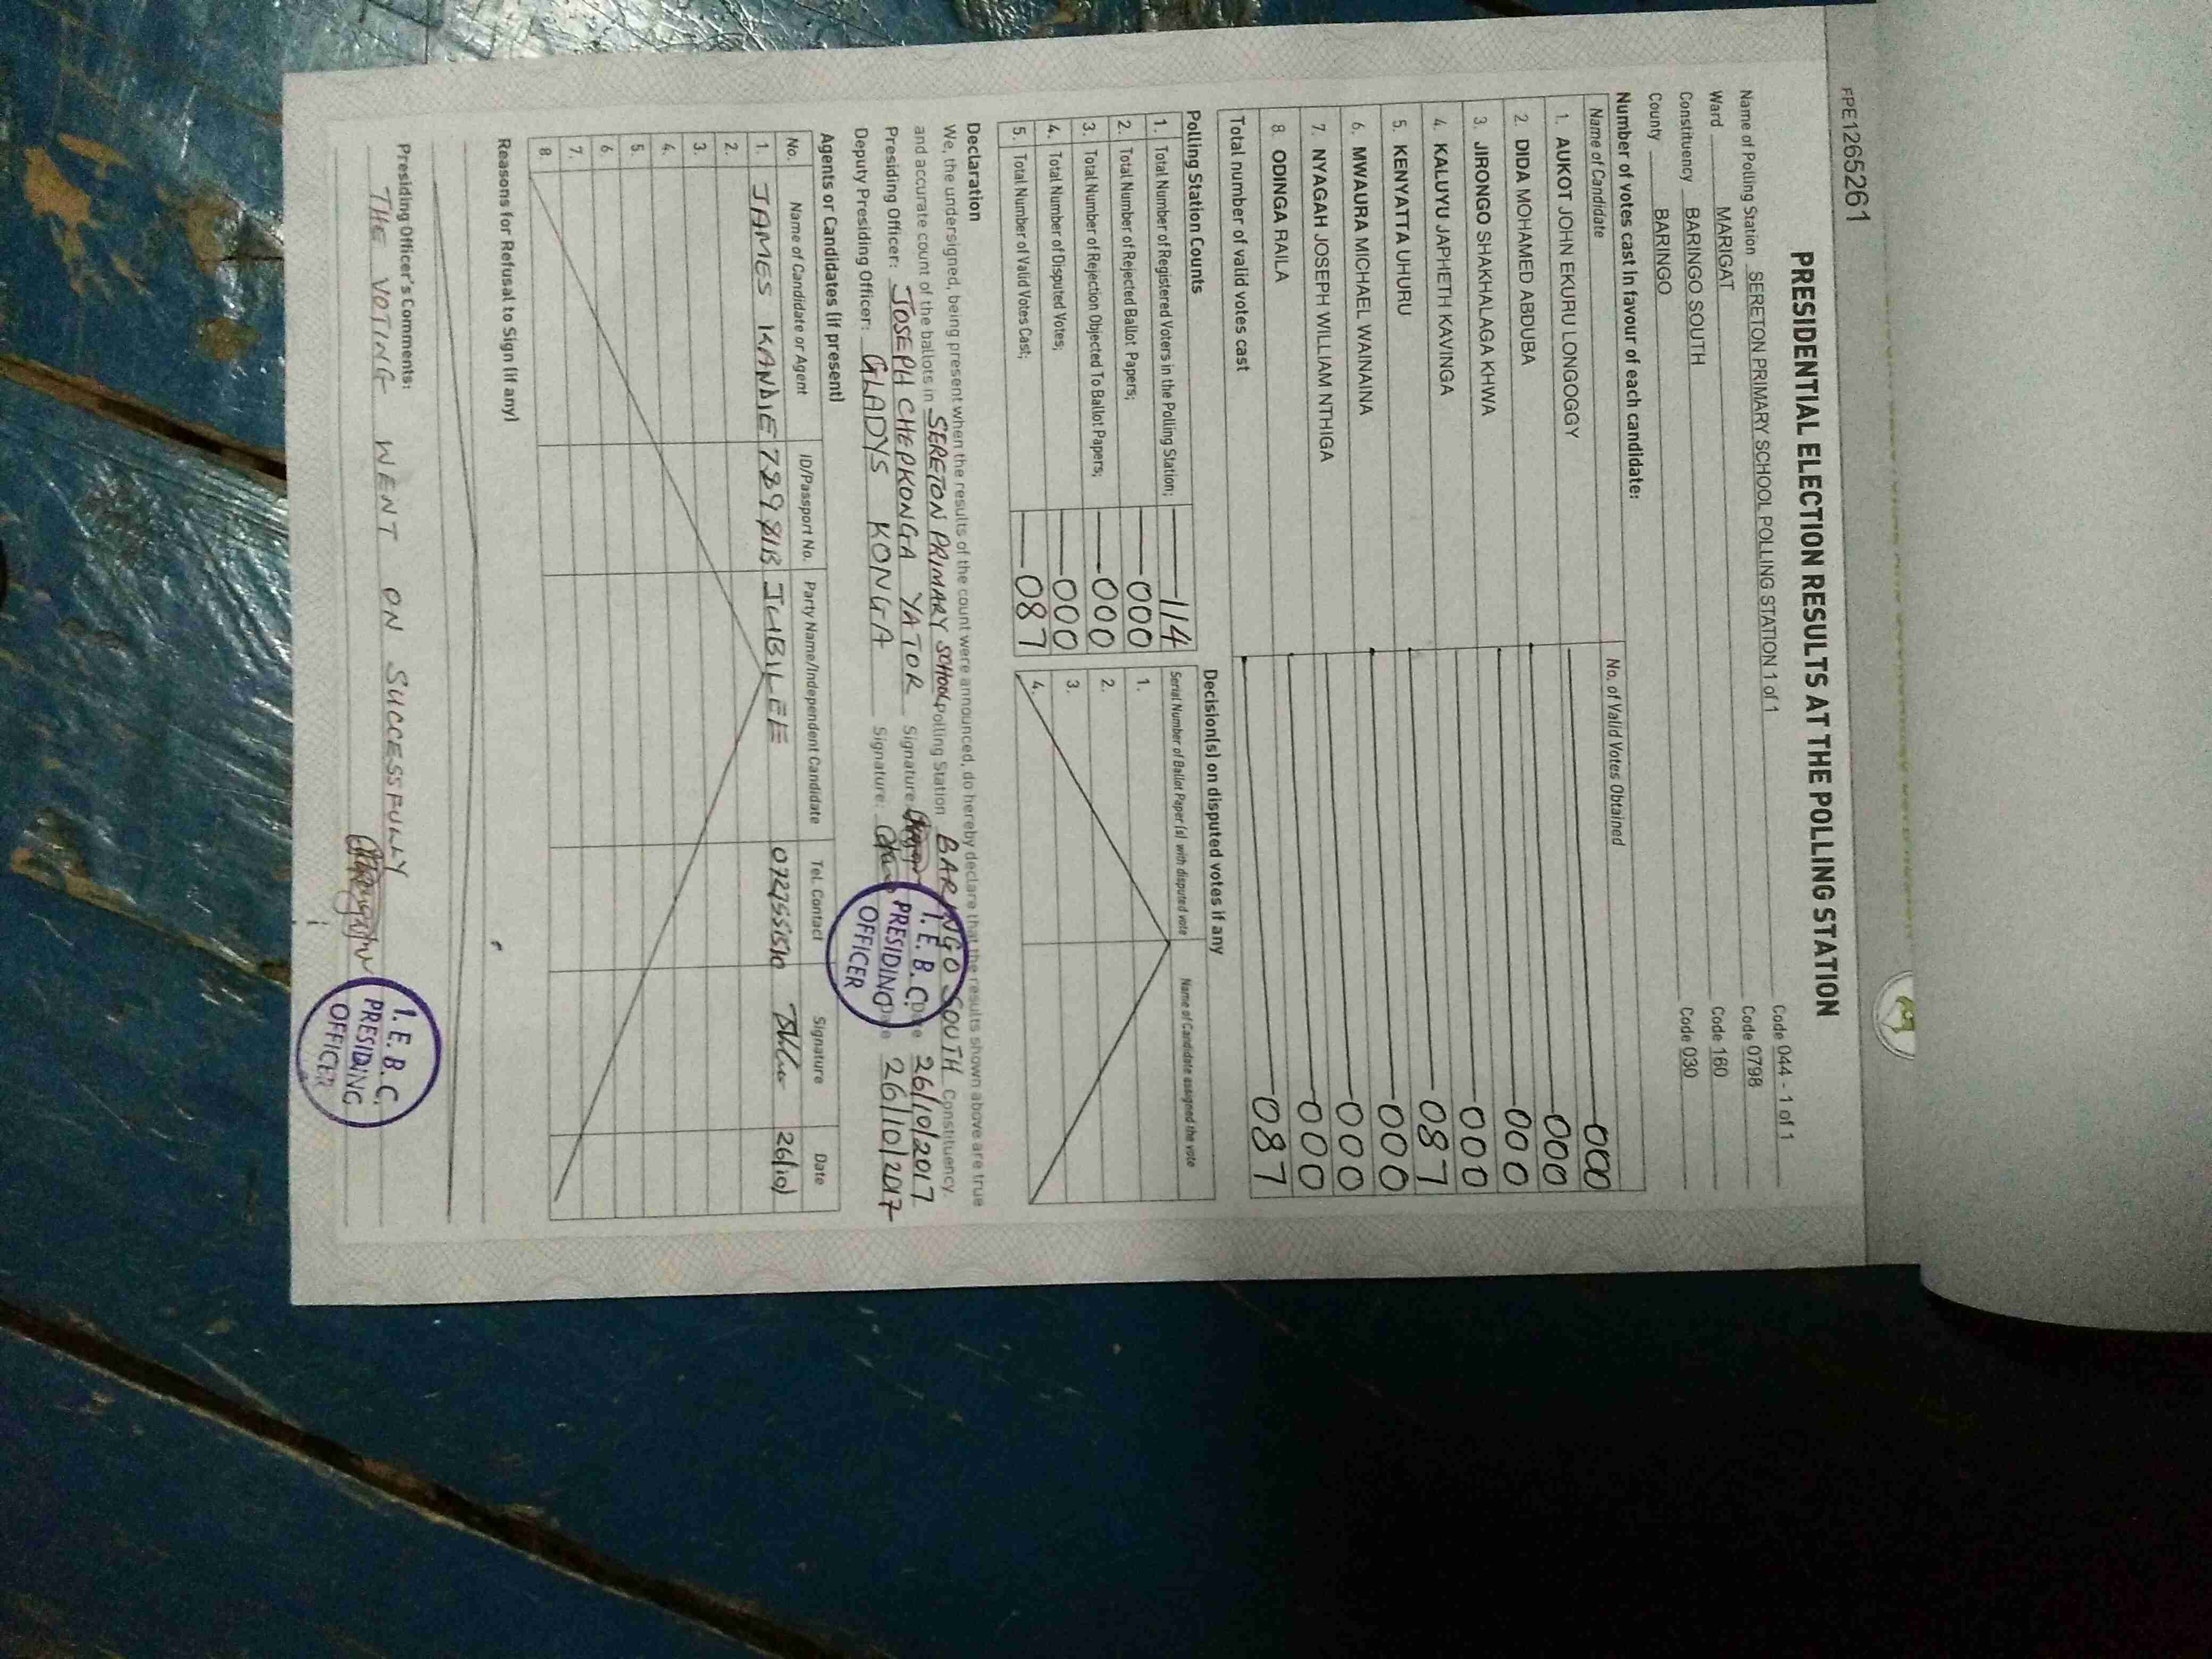 FPE1265261
PRESIDENTIAL ELECTION RESULTS AT THE POLLING STATION
Name of Polling Station SERETON PRIMARY SCHOOL POLLING STATION 1 of 1 Code 044 - 1 of 1
Ward MARIGAT Code 0798
Constituency BARINGO SOUTH Code 160
County BARINGO Code 030
Number of votes cast in favour of each candidate:
Name of Candidate No. of Valid Votes Obtained
1. AUKOT JOHN EKURU LONGOGGY 000
2. DIDA MOHAMED ABDUBA 000
3. JIRONGO SHAKHALAGA KHWA 000
4. KALUYU JAPHETH KAVINGA 000
5. KENYATTA UHURU 087
6. MWAURA MICHAEL WAINAINA 000
7. NYAGAH JOSEPH WILLIAM NTHIGA 000
8. ODINGA RAILA 000
Total number of valid votes cast 087
Polling Station Counts
1. Total Number of Registered Voters in the Polling Station; 114
2. Total Number of Rejected Ballot Papers; 000
3. Total Number of Rejection Objected To Ballot Papers; 000
4. Total Number of Disputed Votes; 000
5. Total Number of Valid Votes Cast; 087
Decision(s) on disputed votes if any
Serial Number of Ballot Paper(s) with disputed vote Name of Candidate assigned the vote
1.
2.
3.
4.
Declaration
We, the undersigned, being present when the results of the count were announced, do hereby declare that the results shown above are true
and accurate count of the ballots in SERETON PRIMARY SCHOOL Polling Station BARINGO SOUTH Constituency.
Presiding Officer: JOSEPH CHEPKONGA YATOR Signature: Date 26/10/2017
Deputy Presiding Officer: GLADYS KONGA Signature: Date 26/10/2017
I.E.B.C.
PRESIDING
OFFICER
Agents or Candidates (if present)
No. Name of Candidate or Agent ID/Passport No. Party Name/Independent Candidate Tel. Contact Signature Date
1. JAMES KANDIE JUBILEE 26/10/
2.
3.
4.
5.
6.
7.
8.
Reasons for Refusal to Sign (if any)
Presiding Officer's Comments:
THE VOTING WENT ON SUCCESSFULLY
I.E.B.C.
PRESIDING
OFFICER